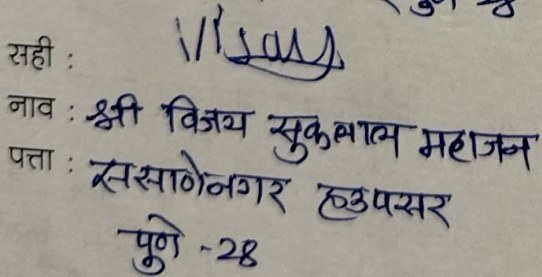 सही : Vijay
नाव : श्री विजय सुकलाल महाजन
पत्ता : ससाणेनगर हडपसर
पुणे -28